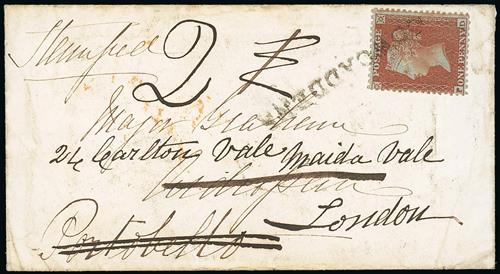 Stamped
2
POSTAGE
ONE PENNY
Major Graham
24 Carlton Vale Maida Vale
London
Portobello